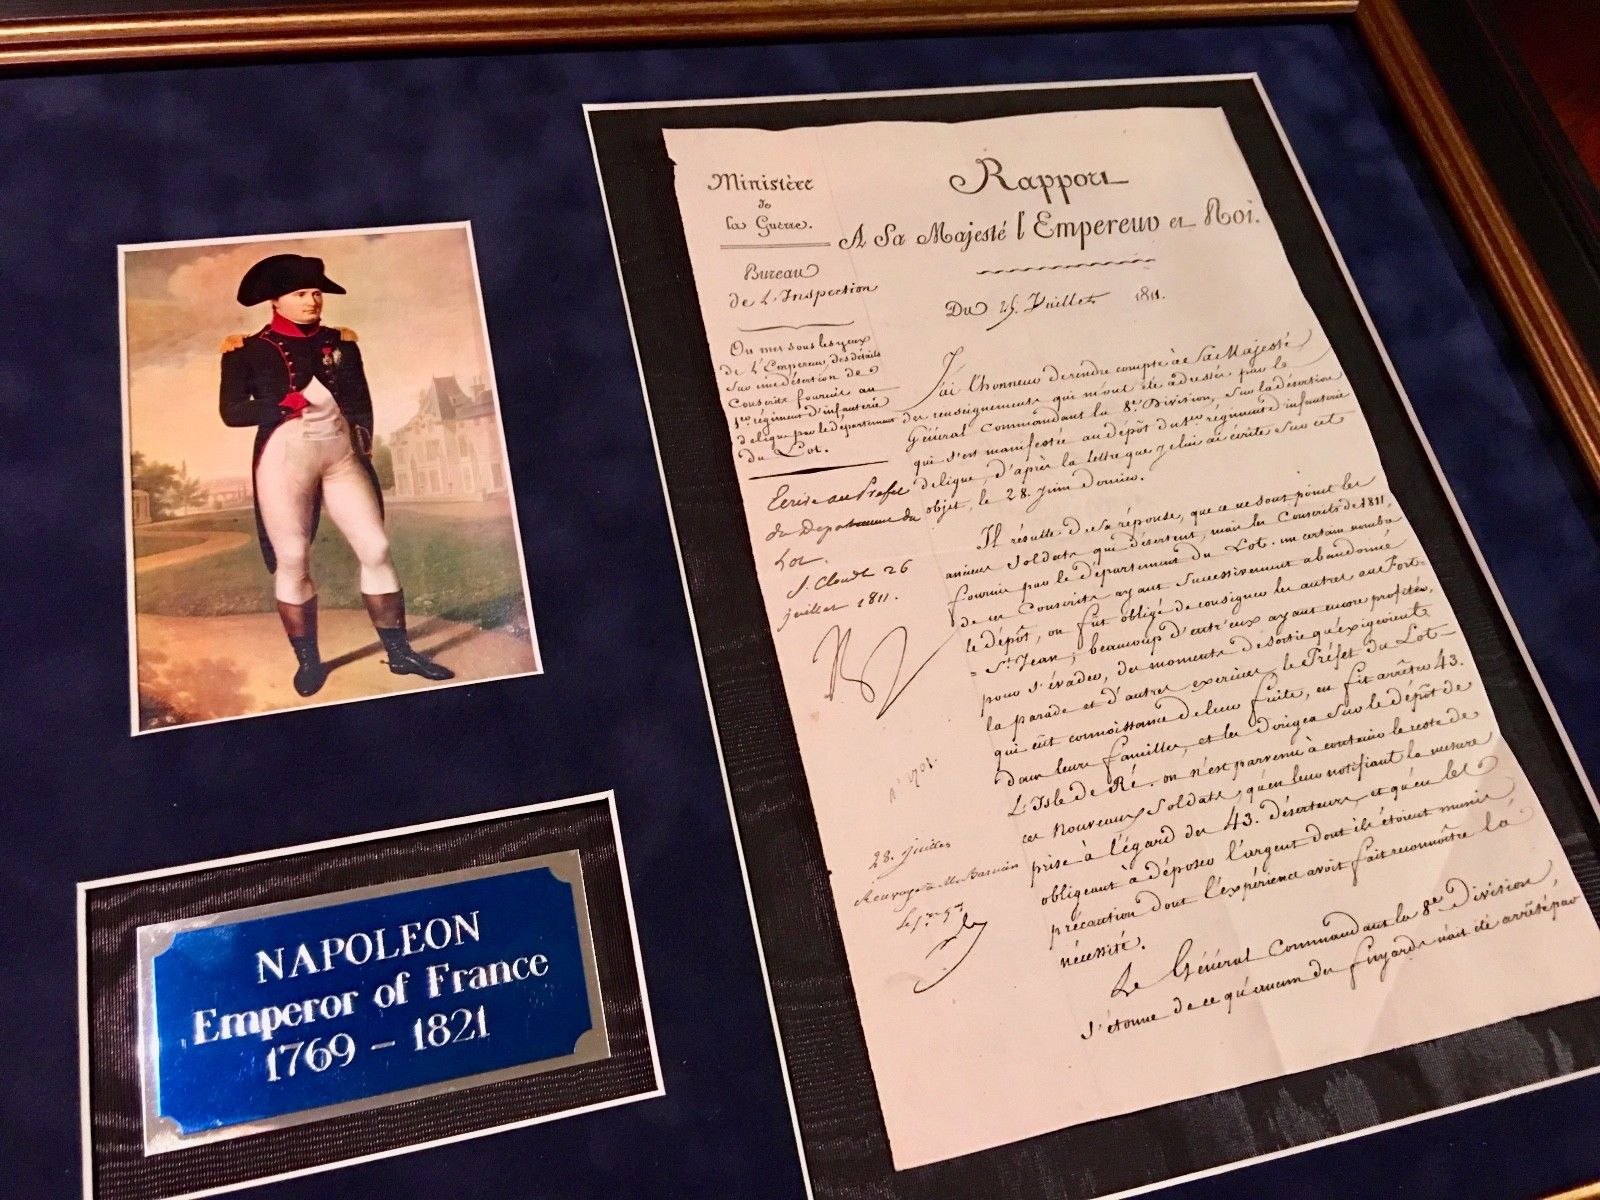 Ministère
de
la Guerre.
Bureau
de l'Inspection
On met sous les yeux
de l'Empereur, des détails
sur une désertion de
Conscrits fournis au
1er régiment d'infanterie
de ligne par le département
du Lot.
Ecrire au Prefet
du Departement du
Lot.
S. Cloud 26
juillet 1811.
n° 1701.
28. juillet
Renvoyé à M.
Rapport
A Sa Majesté l'Empereur et Roi.
Du 25. Juillet 1811.
J'ai l'honneur de rendre compte à Sa Majesté
des renseignemens qui m'ont été adressés par le
Général Commandant la 8e. Division, sur la désertion
qui s'est manifestée au dépôt du 1er régiment d'infanterie
de ligne, d'après la lettre que je lui ai écrite sur cet
objet, le 28. juin dernier.
Il résulte de sa réponse, que ce ne sont point les
anciens Soldats qui désertent, mais les Conscrits de 1811,
fournis par le département du Lot. un certain nombre
de ces Conscrits ayant successivement abandonné
le dépôt, on fut obligé de consigner les autres au Fort-
-St. Jean; beaucoup d'entr'eux ayant encore profité,
pour s'évader, des momens de sortie qu'exigeoient
la parade et d'autres exercices, le Préfet du Lot
qui eût connoissance de leur fuite, en fit arrêter 43.
dans leurs familles, et les dirigea sur le dépôt de
l'Isle de Ré. on n'est parvenu à contenir le reste de
ces nouveaux Soldats, qu'en leur notifiant la mesure
prise à l'égard des 43. déserteurs, et qu'en les
obligeant à déposer l'argent dont ils étoient munis,
précaution dont l'expérience avoit fait reconnoître la
nécessité.
Le Général Commandant la 8e. Division,
s'étonne de ce qu'aucun des fuyards n'ait été arrêté par
NAPOLEON
Emperor of France
1769 - 1821